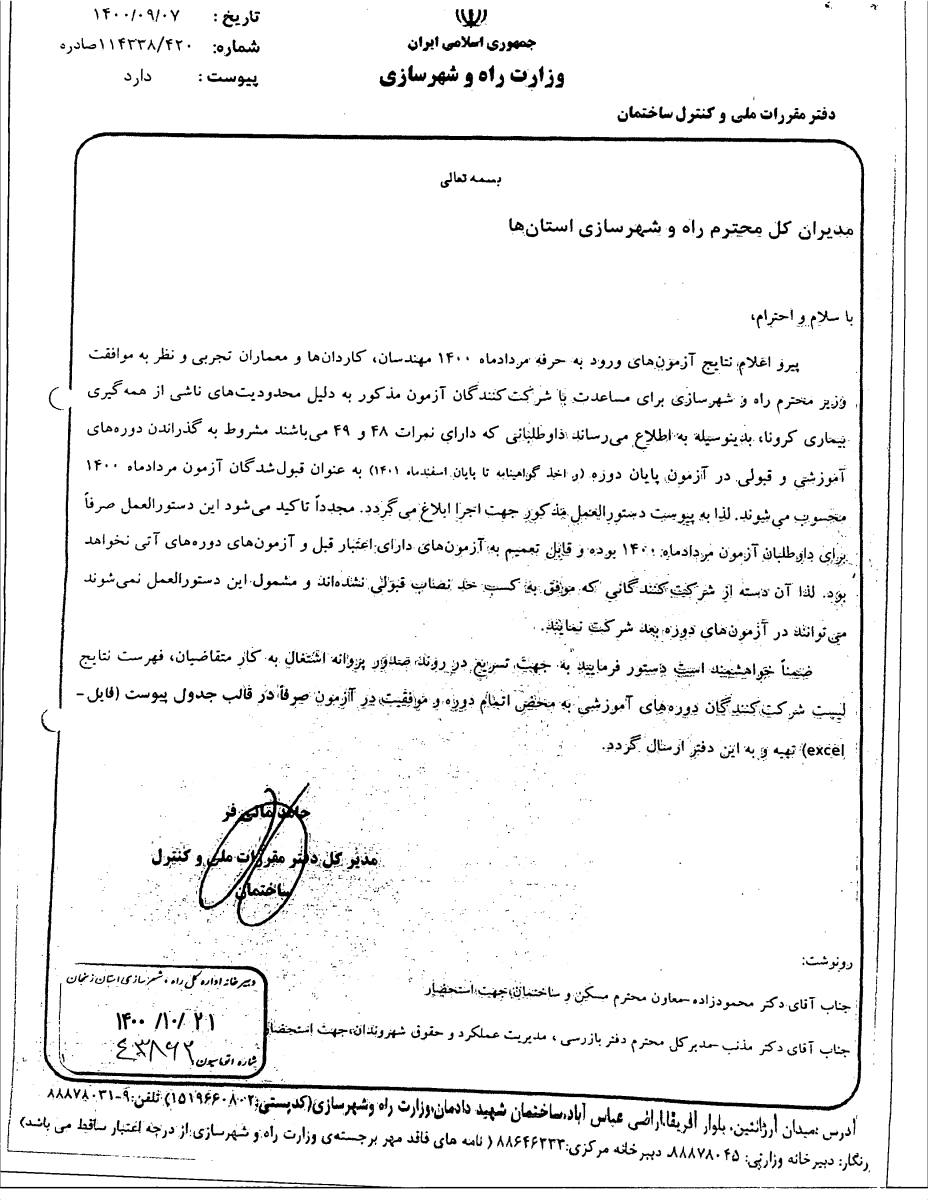 جمهوری اسلامی ایران
وزارت راه و شهرسازی
دفتر مقررات ملی و کنترل ساختمان
تاریخ : ۱۴۰۰/۰۹/۰۷
شماره: ۱۱۴۳۳۸/۴۲۰صادره
پیوست : دارد
بسمه تعالی
مدیران کل محترم راه و شهرسازی استان‌ها
با سلام و احترام،
پیرو اعلام نتایج آزمون‌های ورود به حرفه مردادماه ۱۴۰۰ مهندسان، کاردان‌ها و معماران تجربی و نظر به موافقت
وزیر محترم راه و شهرسازی برای مساعدت با شرکت‌کنندگان آزمون مذکور به دلیل محدودیت‌های ناشی از همه‌گیری
بیماری کرونا، بدینوسیله به اطلاع می‌رساند داوطلبانی که دارای نمرات ۴۸ و ۴۹ می‌باشند مشروط به گذراندن دوره‌های
آموزشی و قبولی در آزمون پایان دوره (و اخذ گواهینامه تا پایان اسفندماه ۱۴۰۱) به عنوان قبول‌شدگان آزمون مردادماه ۱۴۰۰
محسوب می‌شوند. لذا به پیوست دستورالعمل مذکور جهت اجرا ابلاغ می‌گردد. مجدداً تاکید می‌شود این دستورالعمل صرفاً
برای داوطلبان آزمون مردادماه ۱۴۰۰ بوده و قابل تعمیم به آزمون‌های دارای اعتبار قبل و آزمون‌های دوره‌های آتی نخواهد
بود. لذا آن دسته از شرکت‌کنندگانی که موفق به کسب حد نصاب قبولی نشده‌اند و مشمول این دستورالعمل نمی‌شوند
می‌توانند در آزمون‌های دوره بعد شرکت نمایند.
ضمناً خواهشمند است دستور فرمایید به جهت تسریع در روند صدور پروانه اشتغال به کار متقاضیان، فهرست نتایج
لیست شرکت‌کنندگان دوره‌های آموزشی به محض اتمام دوره و موفقیت در آزمون صرفاً در قالب جدول پیوست (فایل-
excel) تهیه و به این دفتر ارسال گردد.
حامد مانی فر
مدیر کل دفتر مقررات ملی و کنترل
ساختمان
رونوشت:
جناب آقای دکتر محمودزاده-معاون محترم مسکن و ساختمان،جهت استحضار
جناب آقای دکتر مذنب-مدیرکل محترم دفتر بازرسی ، مدیریت عملکرد و حقوق شهروندان،جهت استحضار
دبیرخانه اداره کل راه و شهرسازی استان زنجان
۱۴۰۰/۱۰/۲۱
شماره اتوماسیون ۴۳۸۶۲
آدرس :میدان آرژانتین، بلوار آفریقا،اراضی عباس آباد،ساختمان شهید دادمان،وزارت راه وشهرسازی(کدپستی:۰۲-۱۵۱۹۶۶۰۸) تلفن:۹-۸۸۸۷۸۰۳۱
دورنگار: دبیرخانه وزارتی: ۸۸۸۷۸۰۴۵، دبیرخانه مرکزی:۸۸۶۴۶۲۳۳ ( نامه های فاقد مهر برجسته‌ی وزارت راه و شهرسازی از درجه اعتبار ساقط می باشد)